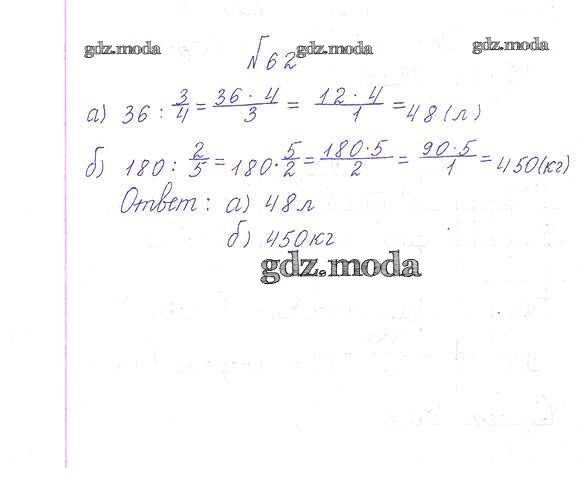 gdz.moda gdz.moda gdz.moda
№62
а) 36 : 3/4 = 36 · 4/3 = 12 · 4/1 = 48 (л)
б) 180 : 2/5 = 180 · 5/2 = 180·5/2 = 90·5/1 = 450(кг)
Ответ: а) 48л
б) 450кг
gdz.moda